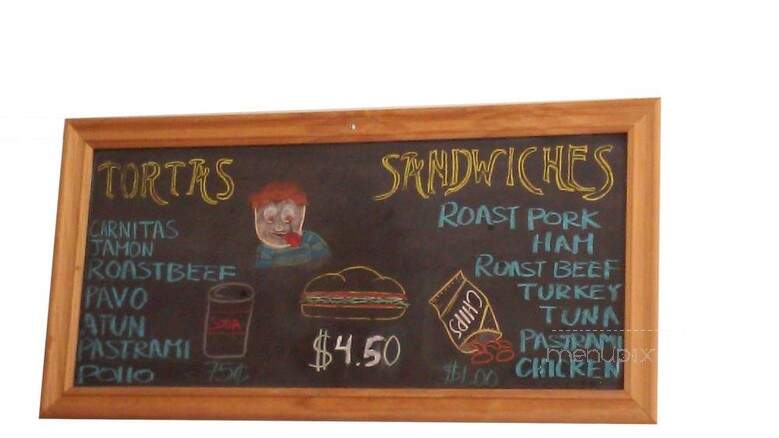 TORTAS
CARNITAS
JAMON
ROASTBEEF
PAVO
ATUN
PASTRAMI
POLLO
SODA
75¢
$4.50
CHIPS
$1.00
SANDWICHES
ROAST PORK
HAM
ROAST BEEF
TURKEY
TUNA
PASTRAMI
CHICKEN
menupix